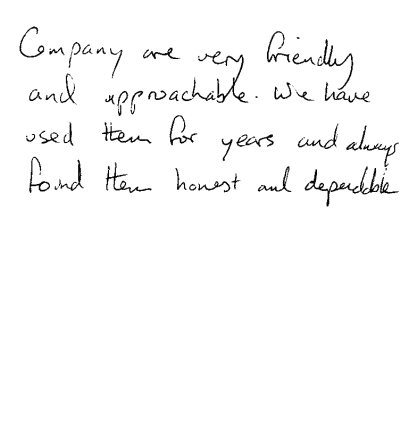 Company are very friendly
and approachable. We have
used them for years and always
found them honest and dependable